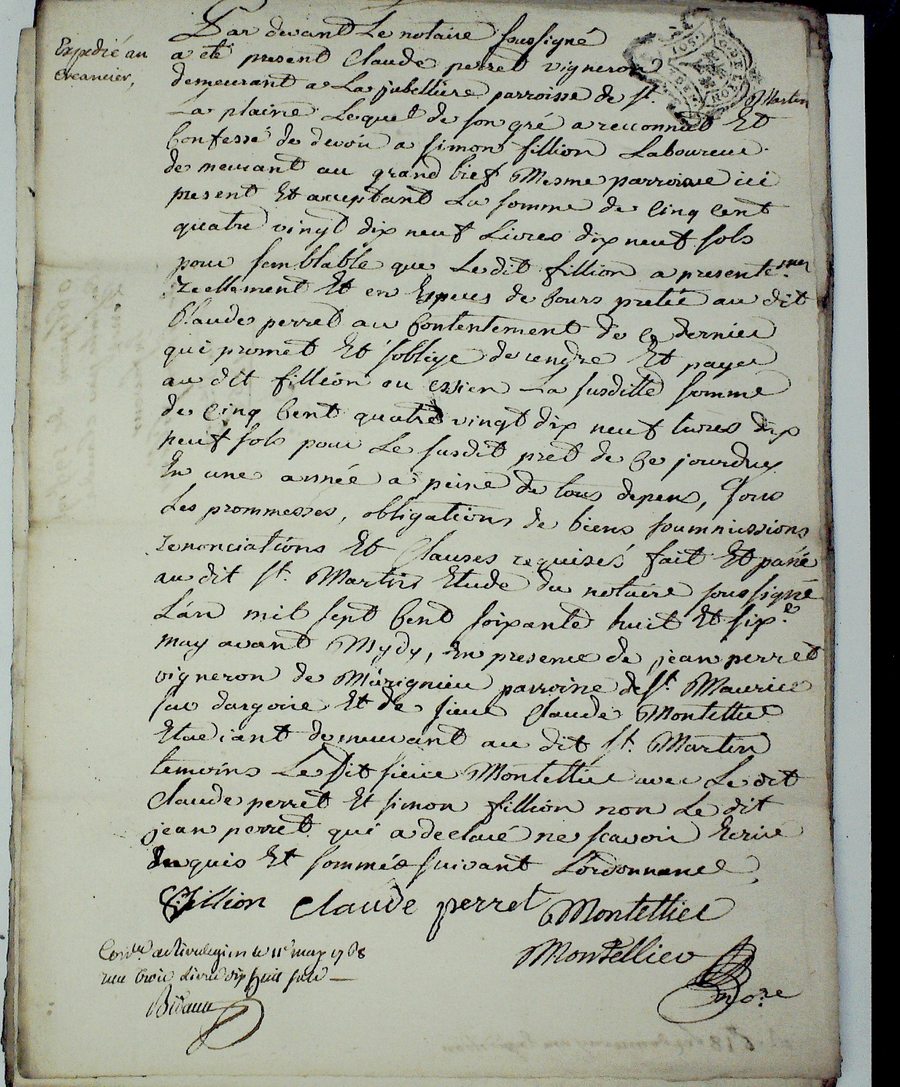 Expedié au
creancier,
Par devant Le notaire soussigné
a eté present Claude perret vigneron
demeurant a La jubelliere parroisse de St. Martin
La plaine Lequel de son gré a reconnut Et
Confessé de devoir a simon fillion Laboureur
demeurant au grand bief Mesme parroisse ici
present Et acceptant La somme de Cinq Cent
quatre vingt dix neuf Livres dix neuf sols
pour semblable que Le dit fillion a presentemen
reellement Et en Especes de Cours pretée au dit
Claude perret au Contentement de ce dernier
qui promet Et s'oblige de rendre Et payer
au dit fillion ou es sien La susditte somme
de Cinq Cent quatre vingt dix neuf livres dix
neuf sols pour Le susdit pret de Ce jourduy
En une année a peine de tous depens, sous
Les prommesses, obligations de biens soumnissions
renonciations Et Clauses requises fait Et passé
au dit St. Martin Etude du notaire soussigné
L'an mil sept Cent soixante huit Et six.e
may avant Mydy, En presence de jean perret
vigneron de Murignieu parroisse de St. Maurice
sur dargoire Et de sieur Claude Montellier
Etudiant demeurant au dit St. Martin
temoins Le Dit sieur Montellier avec Le dit
Claude perret Et simon fillion non Le dit
jean perret qui a declaré ne scavoir Ecrire
Enquis Et sommée suivant L'ordonnance,
S. fillion Claude perret Montellier
Montellier
no.re
Con.lé a Rivedegier le 11e may 1768
reçu trois Livres dix huit sols